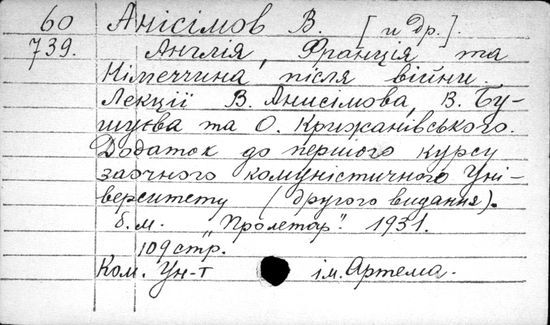 60 Анісімов В. [и др.].
739. Англія, Франція та
Німеччина після війни.
Лекції В. Анисімова, В. Бу-
шуєва та О. Крижанівського.
Додаток до першого курсу
заочного комуністичного Уні-
верситету (другого видання).
б. м. "Пролетар". 1931.
109 стр.
Ком. Ун-т ім. Артема.